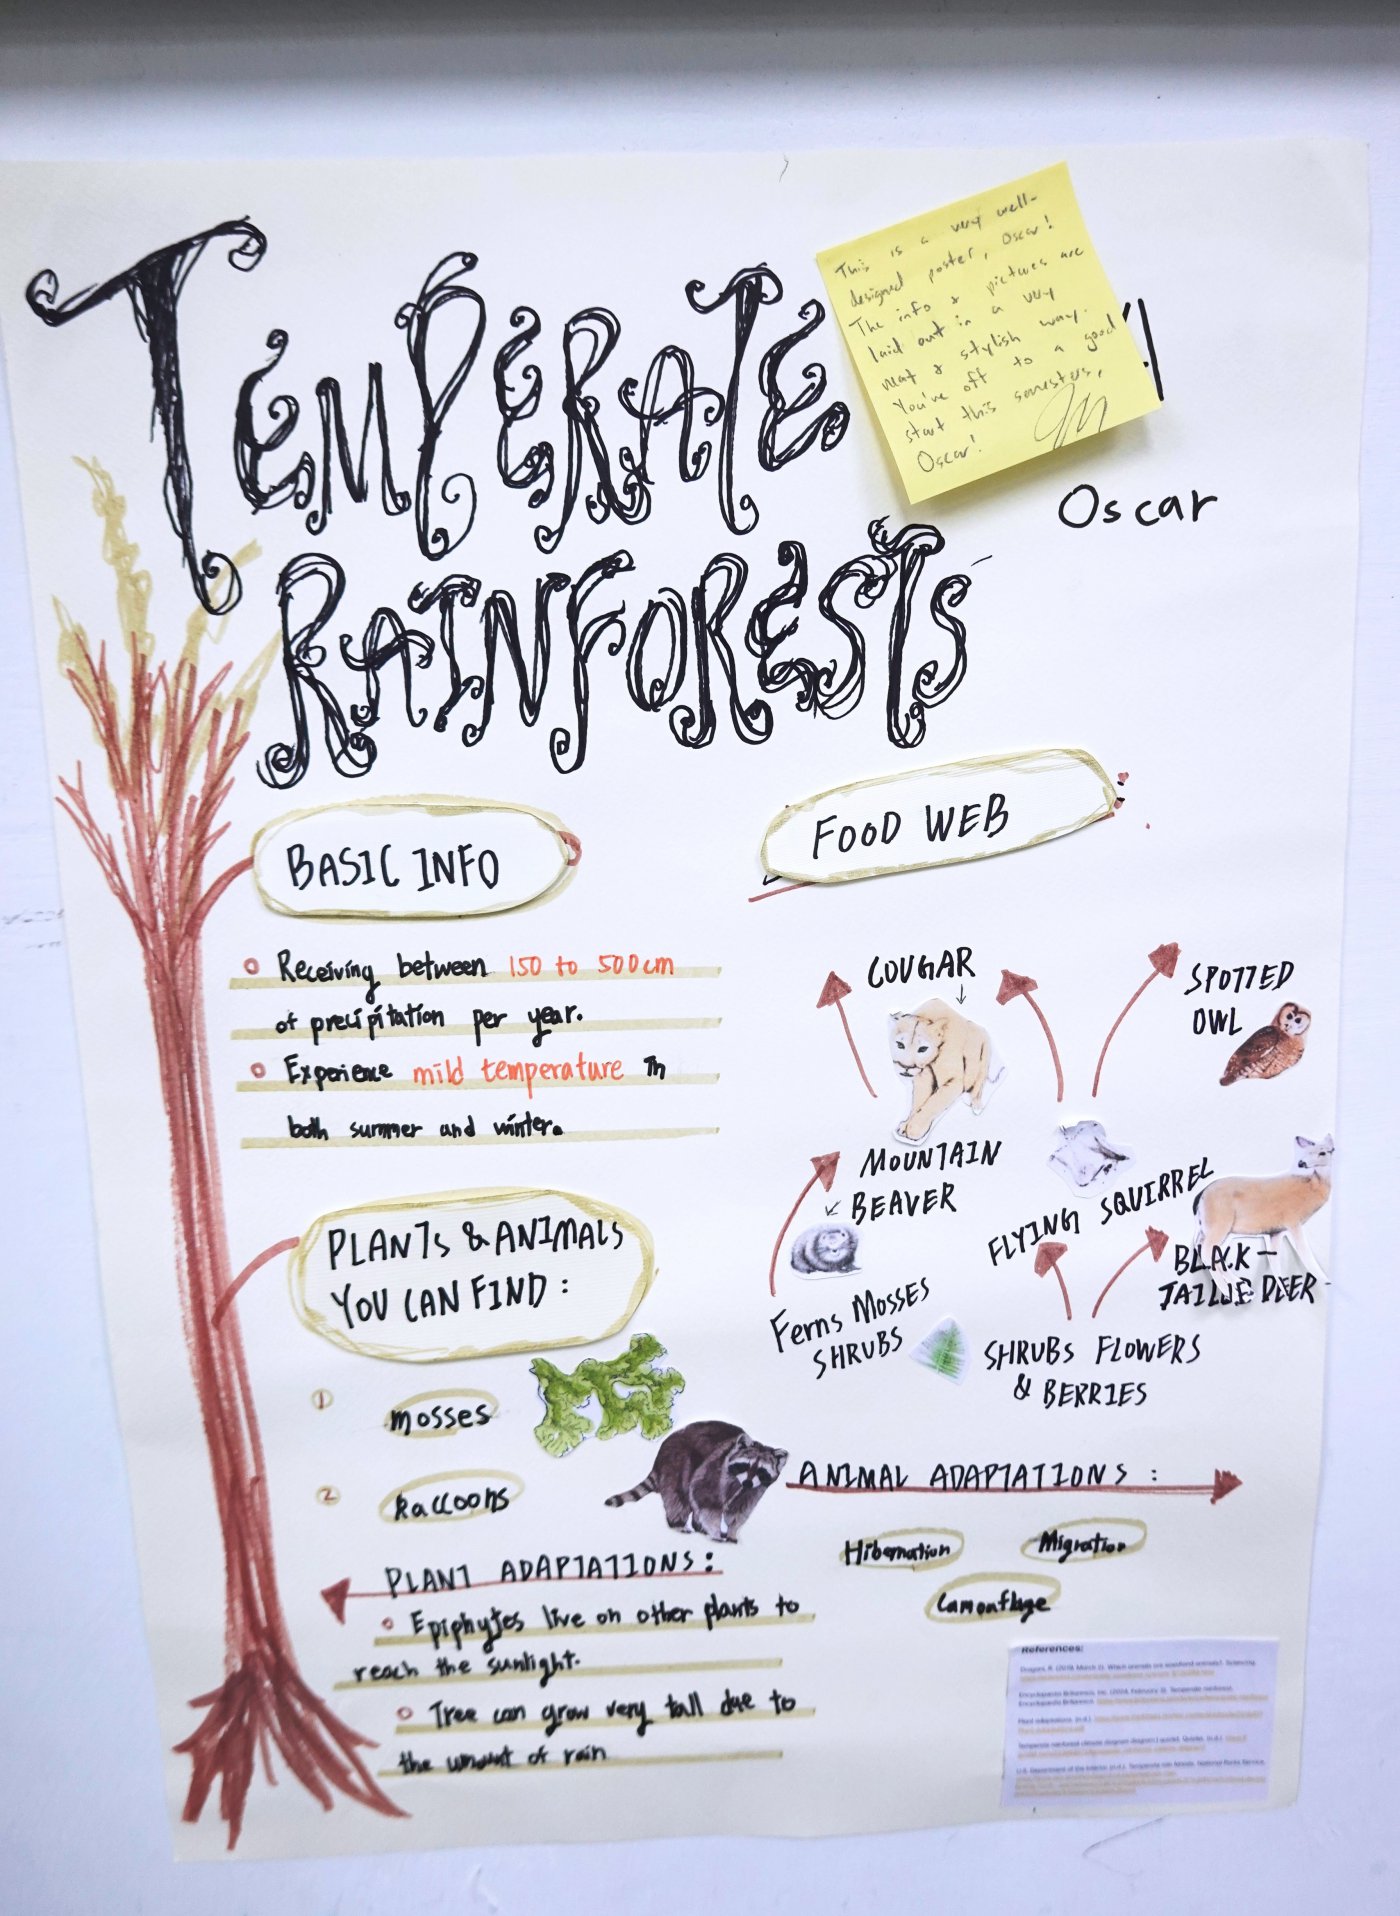 TEMPERATE
RAINFORESTS
This is a very well-
designed poster, Oscar!
The info & pictures are
laid out in a very
neat & stylish way.
You've off to a good
start this semester,
Oscar!
Oscar
BASIC INFO
Receiving between 150 to 500cm
of precipitation per year.
Experience mild temperature in
both summer and winter.
PLANTS & ANIMALS
YOU CAN FIND:
1 mosses
2 Raccoons
PLANT ADAPTATIONS:
Epiphytes live on other plants to
reach the sunlight.
Tree can grow very tall due to
the amount of rain
FOOD WEB
COUGAR
SPOTTED
OWL
MOUNTAIN
BEAVER
FLYING SQUIRREL
BLACK-
TAILDE DEER
Ferns Mosses
SHRUBS
SHRUBS FLOWERS
& BERRIES
ANIMAL ADAPTATIONS:
Hibernation
Migration
Camouflage
References: